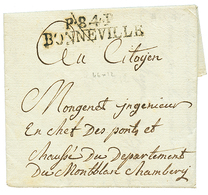 P.84.P
BONNEVILLE
Au Citoyen
Mongenet ingenieur
En chef Des ponts et
chaussé du Departement
Du Montblanc Chambery